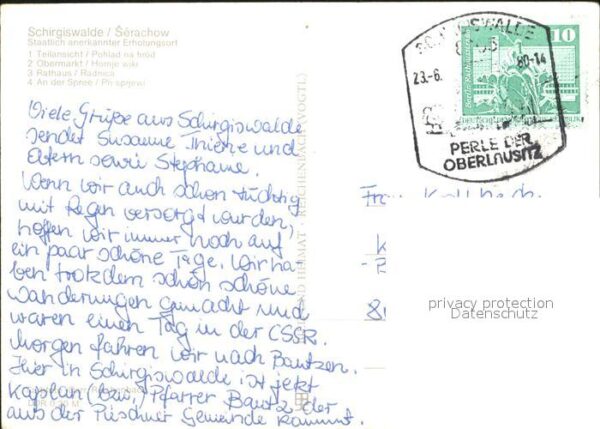 Schirgiswalde / Šěrachow
Staatlich anerkannter Erholungsort
1 Teilansicht / Pohlad na hród
2 Obermarkt / Hornje wiki
3 Rathaus / Radnica
4 An der Spree / Při sprjewi
Viele Grüße aus Schirgiswalde
sendet Susanne Thieme und
Eltern sowie Stephanie.
Wenn wir auch schon tüchtig
mit Regen versorgt wurden,
hoffen wir immer noch auf
ein paar schöne Tage. Wir ha-
ben trotzdem schön schöne
Wanderungen gemacht und
waren einen Tag in der CSSR.
Morgen fahren wir nach Bautzen.
Hier in Schirgiswalde ist jetzt
Kaplan (bzw.) Pfarrer Bautz der
aus der Gemeinde kommt.
BILD UND HEIMAT · REICHENBACH (VOGTL)
SCHIRGISWALDE
23.-6. 80-14
PERLE DER
OBERLAUSITZ
10
Frau
privacy protection
Datenschutz